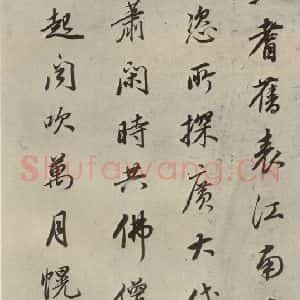 耆舊表江南
恣所探廣大
蕭閑時共佛僧
起閱吹萬月幌
Shufawang.CN